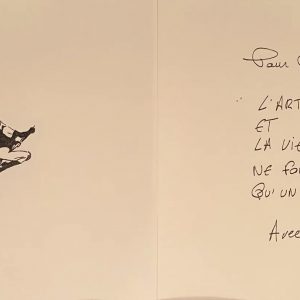 Pour
" L'ART
ET
LA VIE
NE FO
QU'UN
Avec